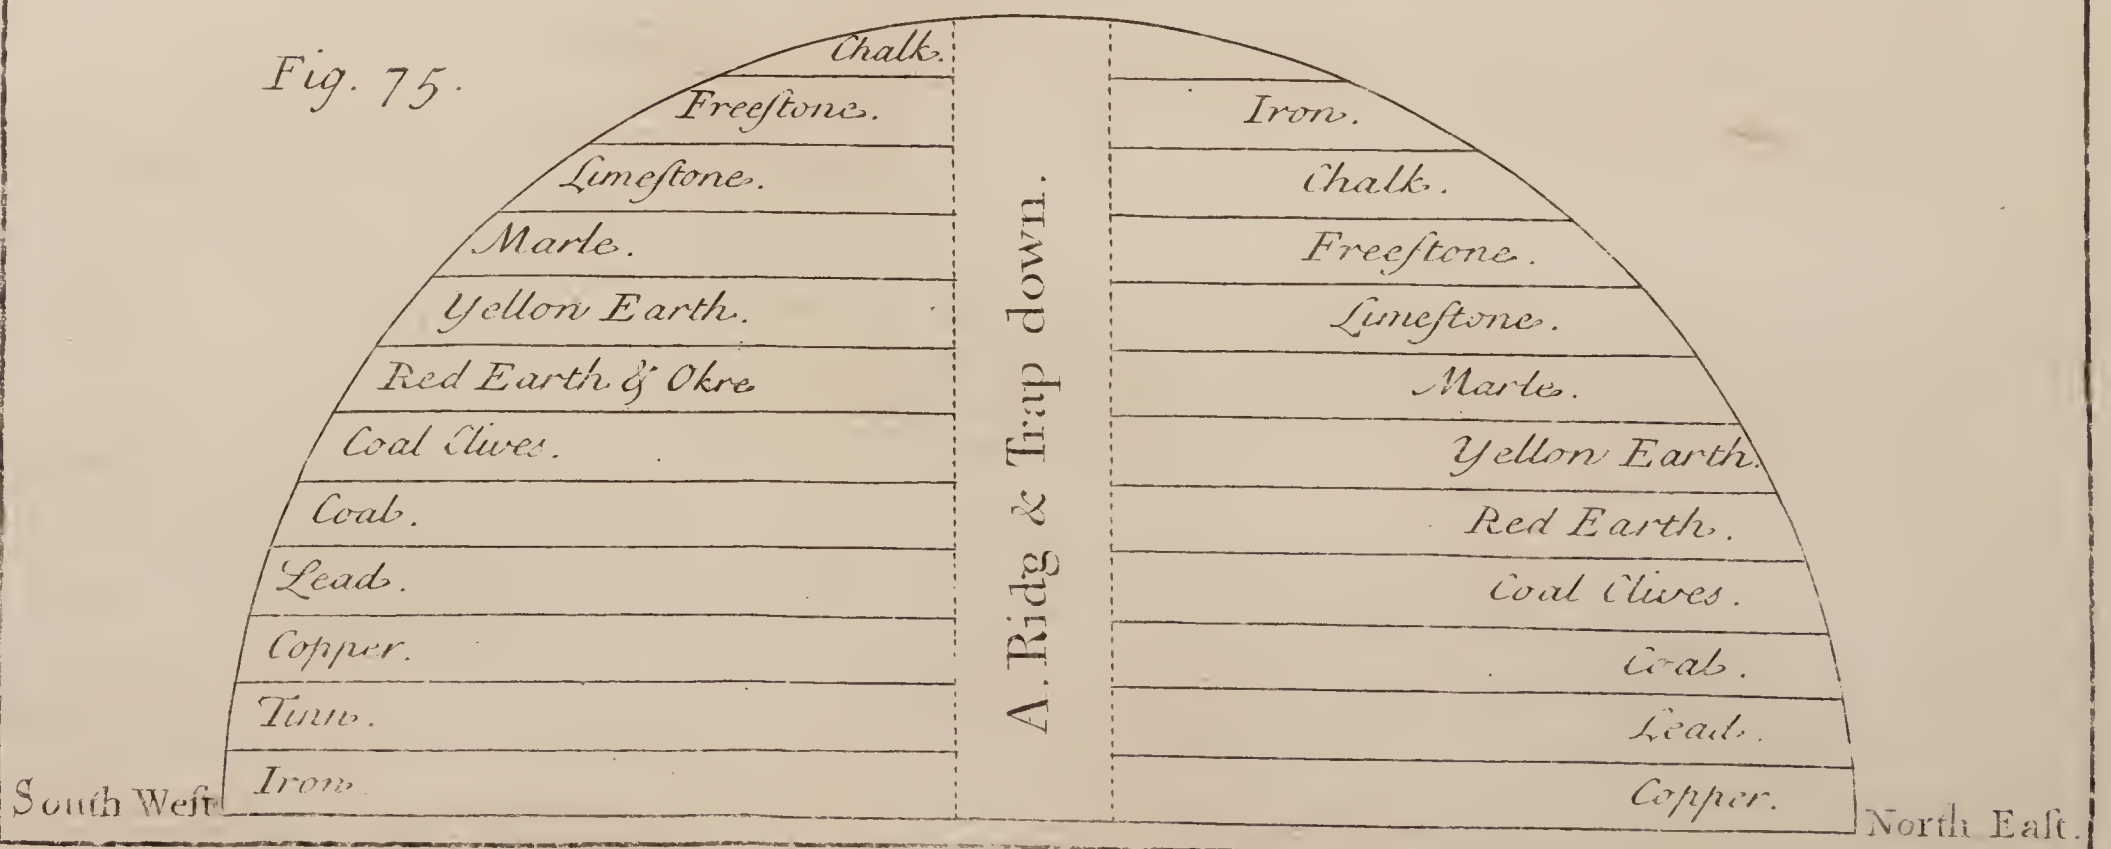 Fig. 75.
Chalk.
Freeſtone.
Limeſtone.
Marle.
Yellon Earth.
Red Earth & Okre
Coal Clives.
Coal.
Lead.
Copper.
Tinn.
Iron
South Weſt
A. Ridg & Trap down.
Iron.
Chalk.
Freeſtone.
Limeſtone.
Marle.
Yellon Earth.
Red Earth.
Coal Clives.
Coal.
Lead.
Copper.
North Eaſt.